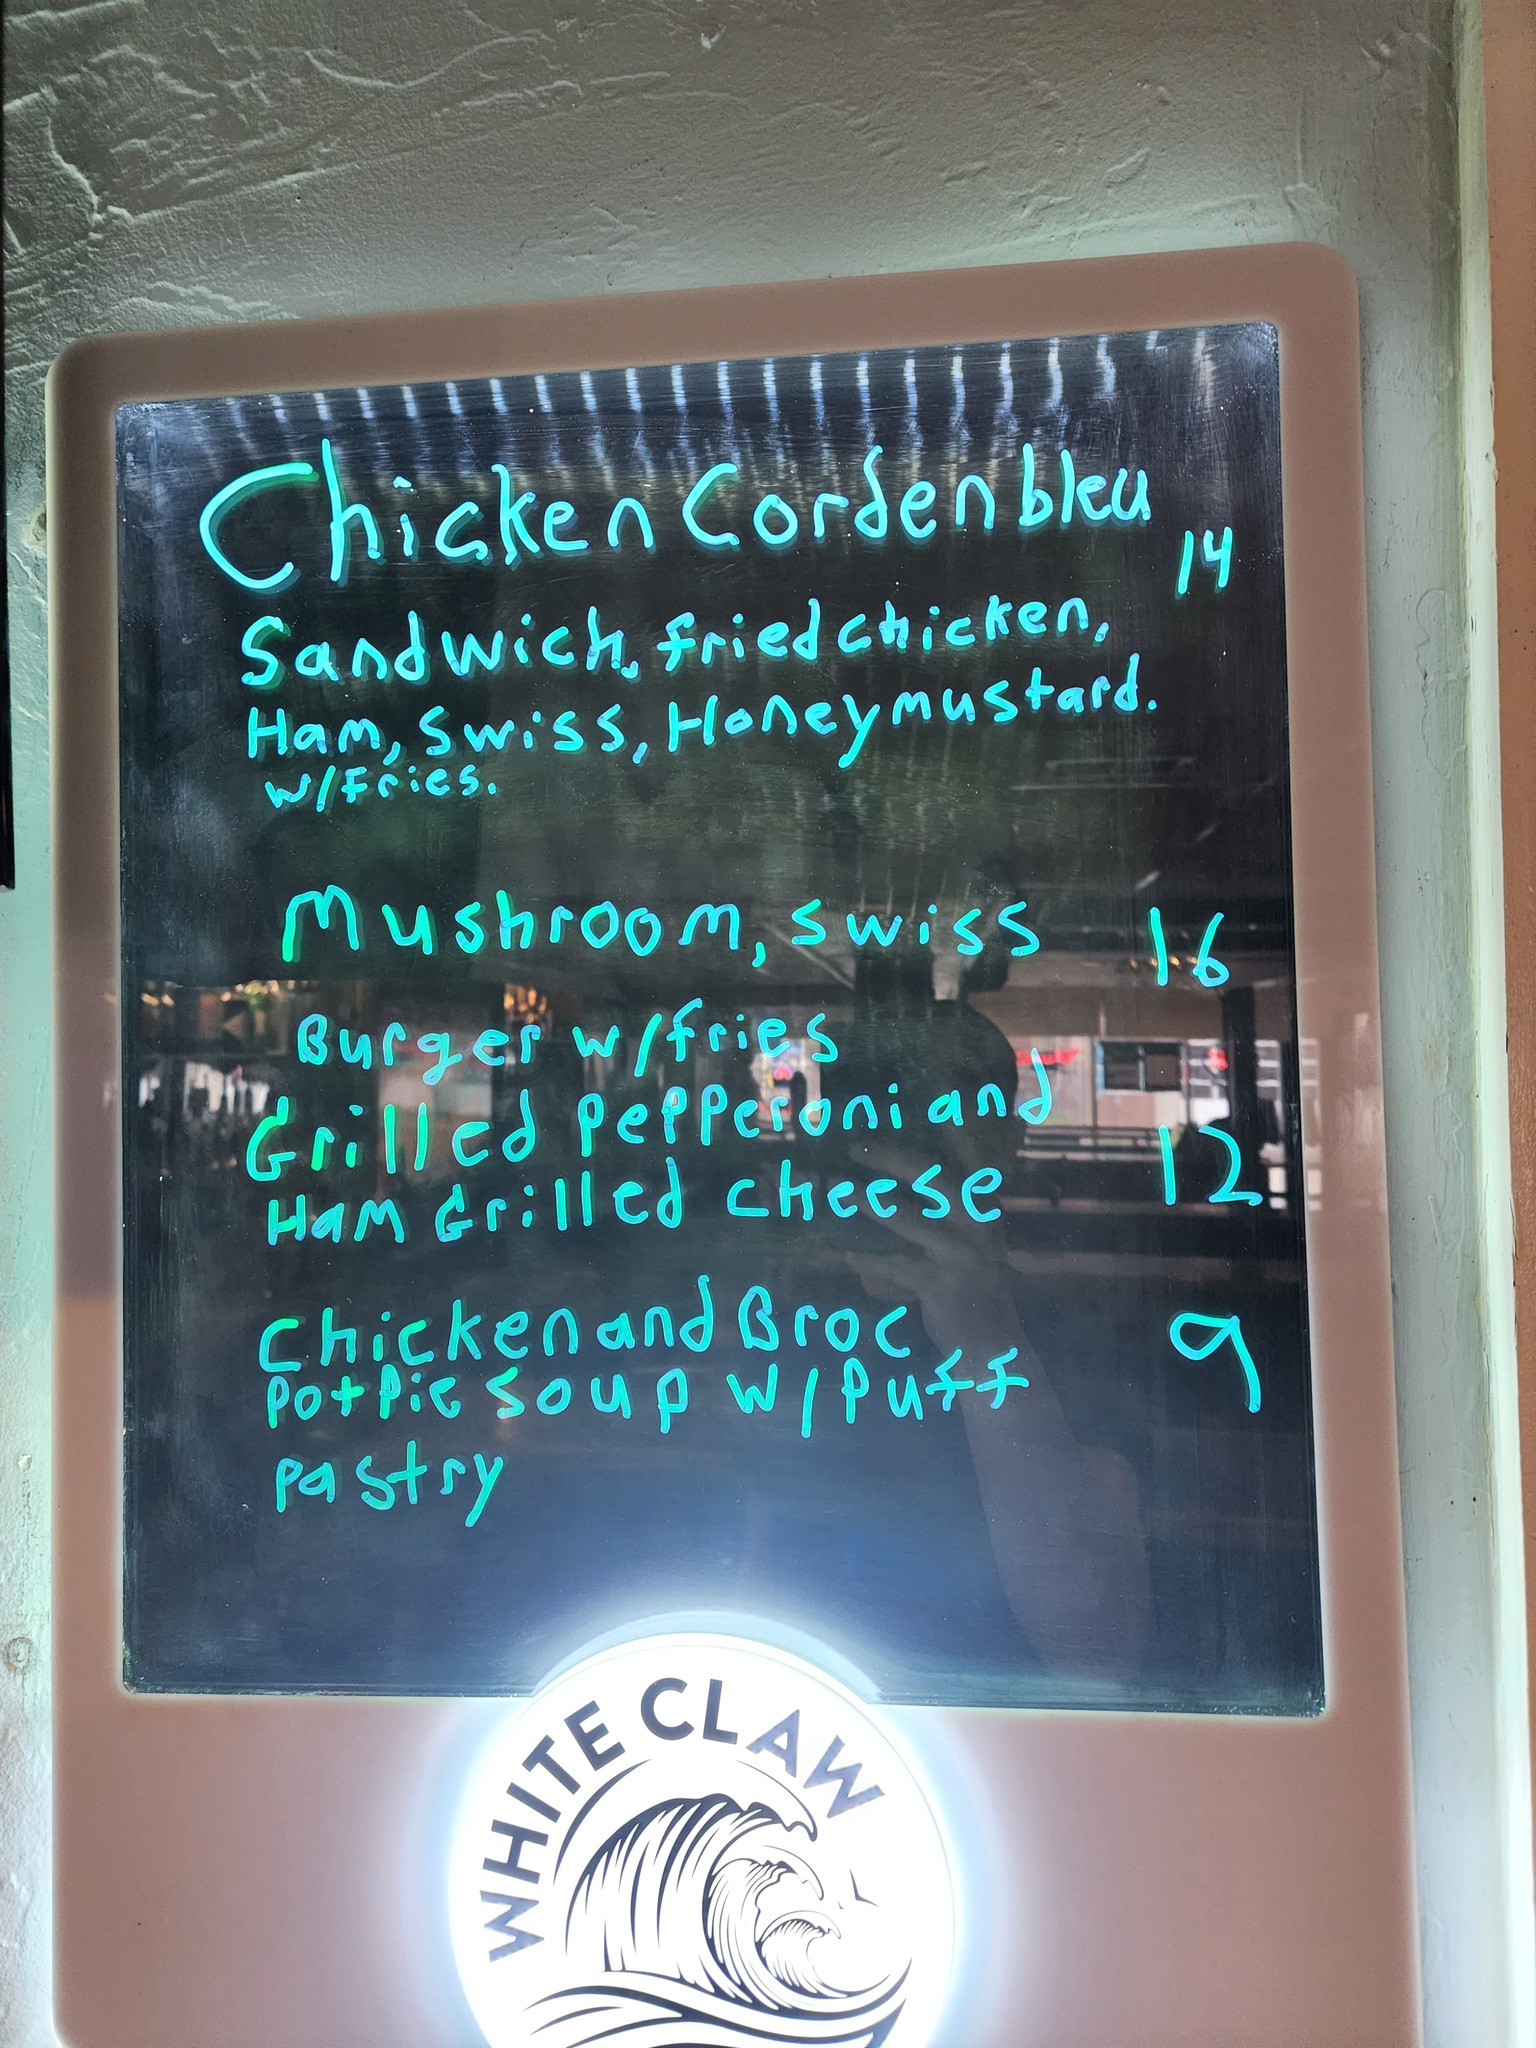 Chicken Cordenbleu
14
Sandwich, friedchicken,
Ham, Swiss, Honeymustard.
w/fries.
Mushroom, swiss 16
Burger w/fries
Grilled pepperoni and
Ham Grilled cheese 12
Chicken and Broc 9
Pot Pie Soup w/ Puff
pastry
WHITE CLAW